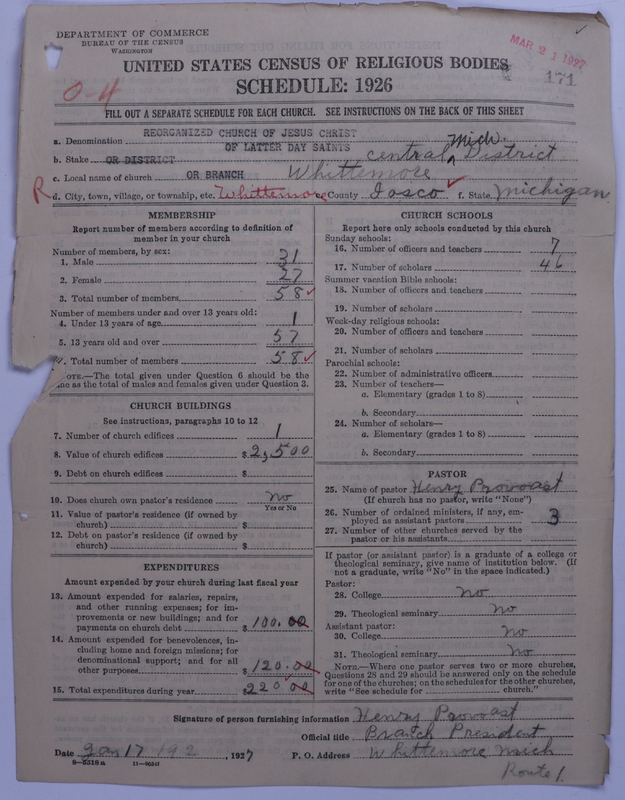 DEPARTMENT OF COMMERCE
BUREAU OF THE CENSUS
WASHINGTON
MAR 21 1927
171
UNITED STATES CENSUS OF RELIGIOUS BODIES
SCHEDULE: 1926
0-4
FILL OUT A SEPARATE SCHEDULE FOR EACH CHURCH. SEE INSTRUCTIONS ON THE BACK OF THIS SHEET
a. Denomination REORGANIZED CHURCH OF JESUS CHRIST
OF LATTER DAY SAINTS
b. Stake OR DISTRICT Central Mich. District
c. Local name of church OR BRANCH Whittemore
R d. City, town, village, or township, etc. Whittemore e. County Iosco f. State Michigan
MEMBERSHIP
Report number of members according to definition of
member in your church
Number of members, by sex:
1. Male 31
2. Female 27
3. Total number of members 58
Number of members under and over 13 years old:
4. Under 13 years of age 1
5. 13 years old and over 57
6. Total number of members 58
NOTE.—The total given under Question 6 should be the
same as the total of males and females given under Question 3.
CHURCH BUILDINGS
See instructions, paragraphs 10 to 12
7. Number of church edifices 1
8. Value of church edifices $ 2,500
9. Debt on church edifices $
10. Does church own pastor's residence no
Yes or No
11. Value of pastor's residence (if owned by
church) $
12. Debt on pastor's residence (if owned by
church) $
EXPENDITURES
Amount expended by your church during last fiscal year
13. Amount expended for salaries, repairs,
and other running expenses; for im-
provements or new buildings; and for
payments on church debt $ 100.00
14. Amount expended for benevolences, in-
cluding home and foreign missions; for
denominational support; and for all
other purposes $ 120.00
15. Total expenditures during year $ 220 00
CHURCH SCHOOLS
Report here only schools conducted by this church
Sunday schools:
16. Number of officers and teachers 7
17. Number of scholars 46
Summer vacation Bible schools:
18. Number of officers and teachers
19. Number of scholars
Week-day religious schools:
20. Number of officers and teachers
21. Number of scholars
Parochial schools:
22. Number of administrative officers
23. Number of teachers—
a. Elementary (grades 1 to 8)
b. Secondary
24. Number of scholars—
a. Elementary (grades 1 to 8)
b. Secondary
PASTOR
25. Name of pastor Henry Provoast
(If church has no pastor, write "None")
26. Number of ordained ministers, if any, em-
ployed as assistant pastors 3
27. Number of other churches served by the
pastor or his assistants
If pastor (or assistant pastor) is a graduate of a college or
theological seminary, give name of institution below. (If
not a graduate, write "No" in the space indicated.)
Pastor:
28. College no
29. Theological seminary No
Assistant pastor:
30. College No
31. Theological seminary No
NOTE.—Where one pastor serves two or more churches,
Questions 28 and 29 should be answered only on the schedule
for one of the churches; on the schedules for the other churches,
write "See schedule for church."
Signature of person furnishing information Henry Provoast
Official title Branch President
Date Jan 17 192 , 1927 P. O. Address Whittemore Mich
Route 1.
8-5518 a